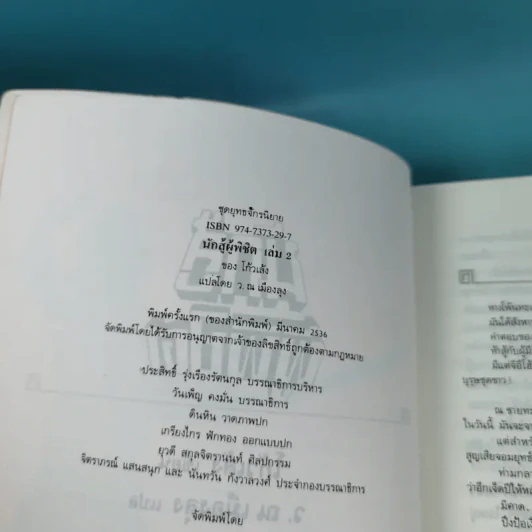 ชุดยุทธจักรนิยาย
ISBN 974-7373-29-7
นักสู้ผู้พิชิต เล่ม 2
ของ โก้วเล้ง
แปลโดย ว. ณ เมืองลุง
พิมพ์ครั้งแรก (ของสำนักพิมพ์) มีนาคม 2536
จัดพิมพ์โดยได้รับการอนุญาตจากเจ้าของลิขสิทธิ์ถูกต้องตามกฎหมาย
ประสิทธิ์ รุ่งเรืองรัตนกุล บรรณาธิการบริหาร
วันเพ็ญ คงมั่น บรรณาธิการ
ดินหิน วาดภาพปก
เกรียงไกร ฟักทอง ออกแบบปก
ยุวดี สกุลจิตรานนท์ ศิลปกรรม
จิตราภรณ์ แสนสนุก และ นันทวัน กังวาลวงศ์ ประจำกองบรรณาธิการ
จัดพิมพ์โดย
ณ ชายทะ
ในวันนี้ มันจะจา
แต่สำหรั
สูญเสียจอมยุทธ์
ท่ามกลา
ว่าอีกเจ็ดปีให้หล